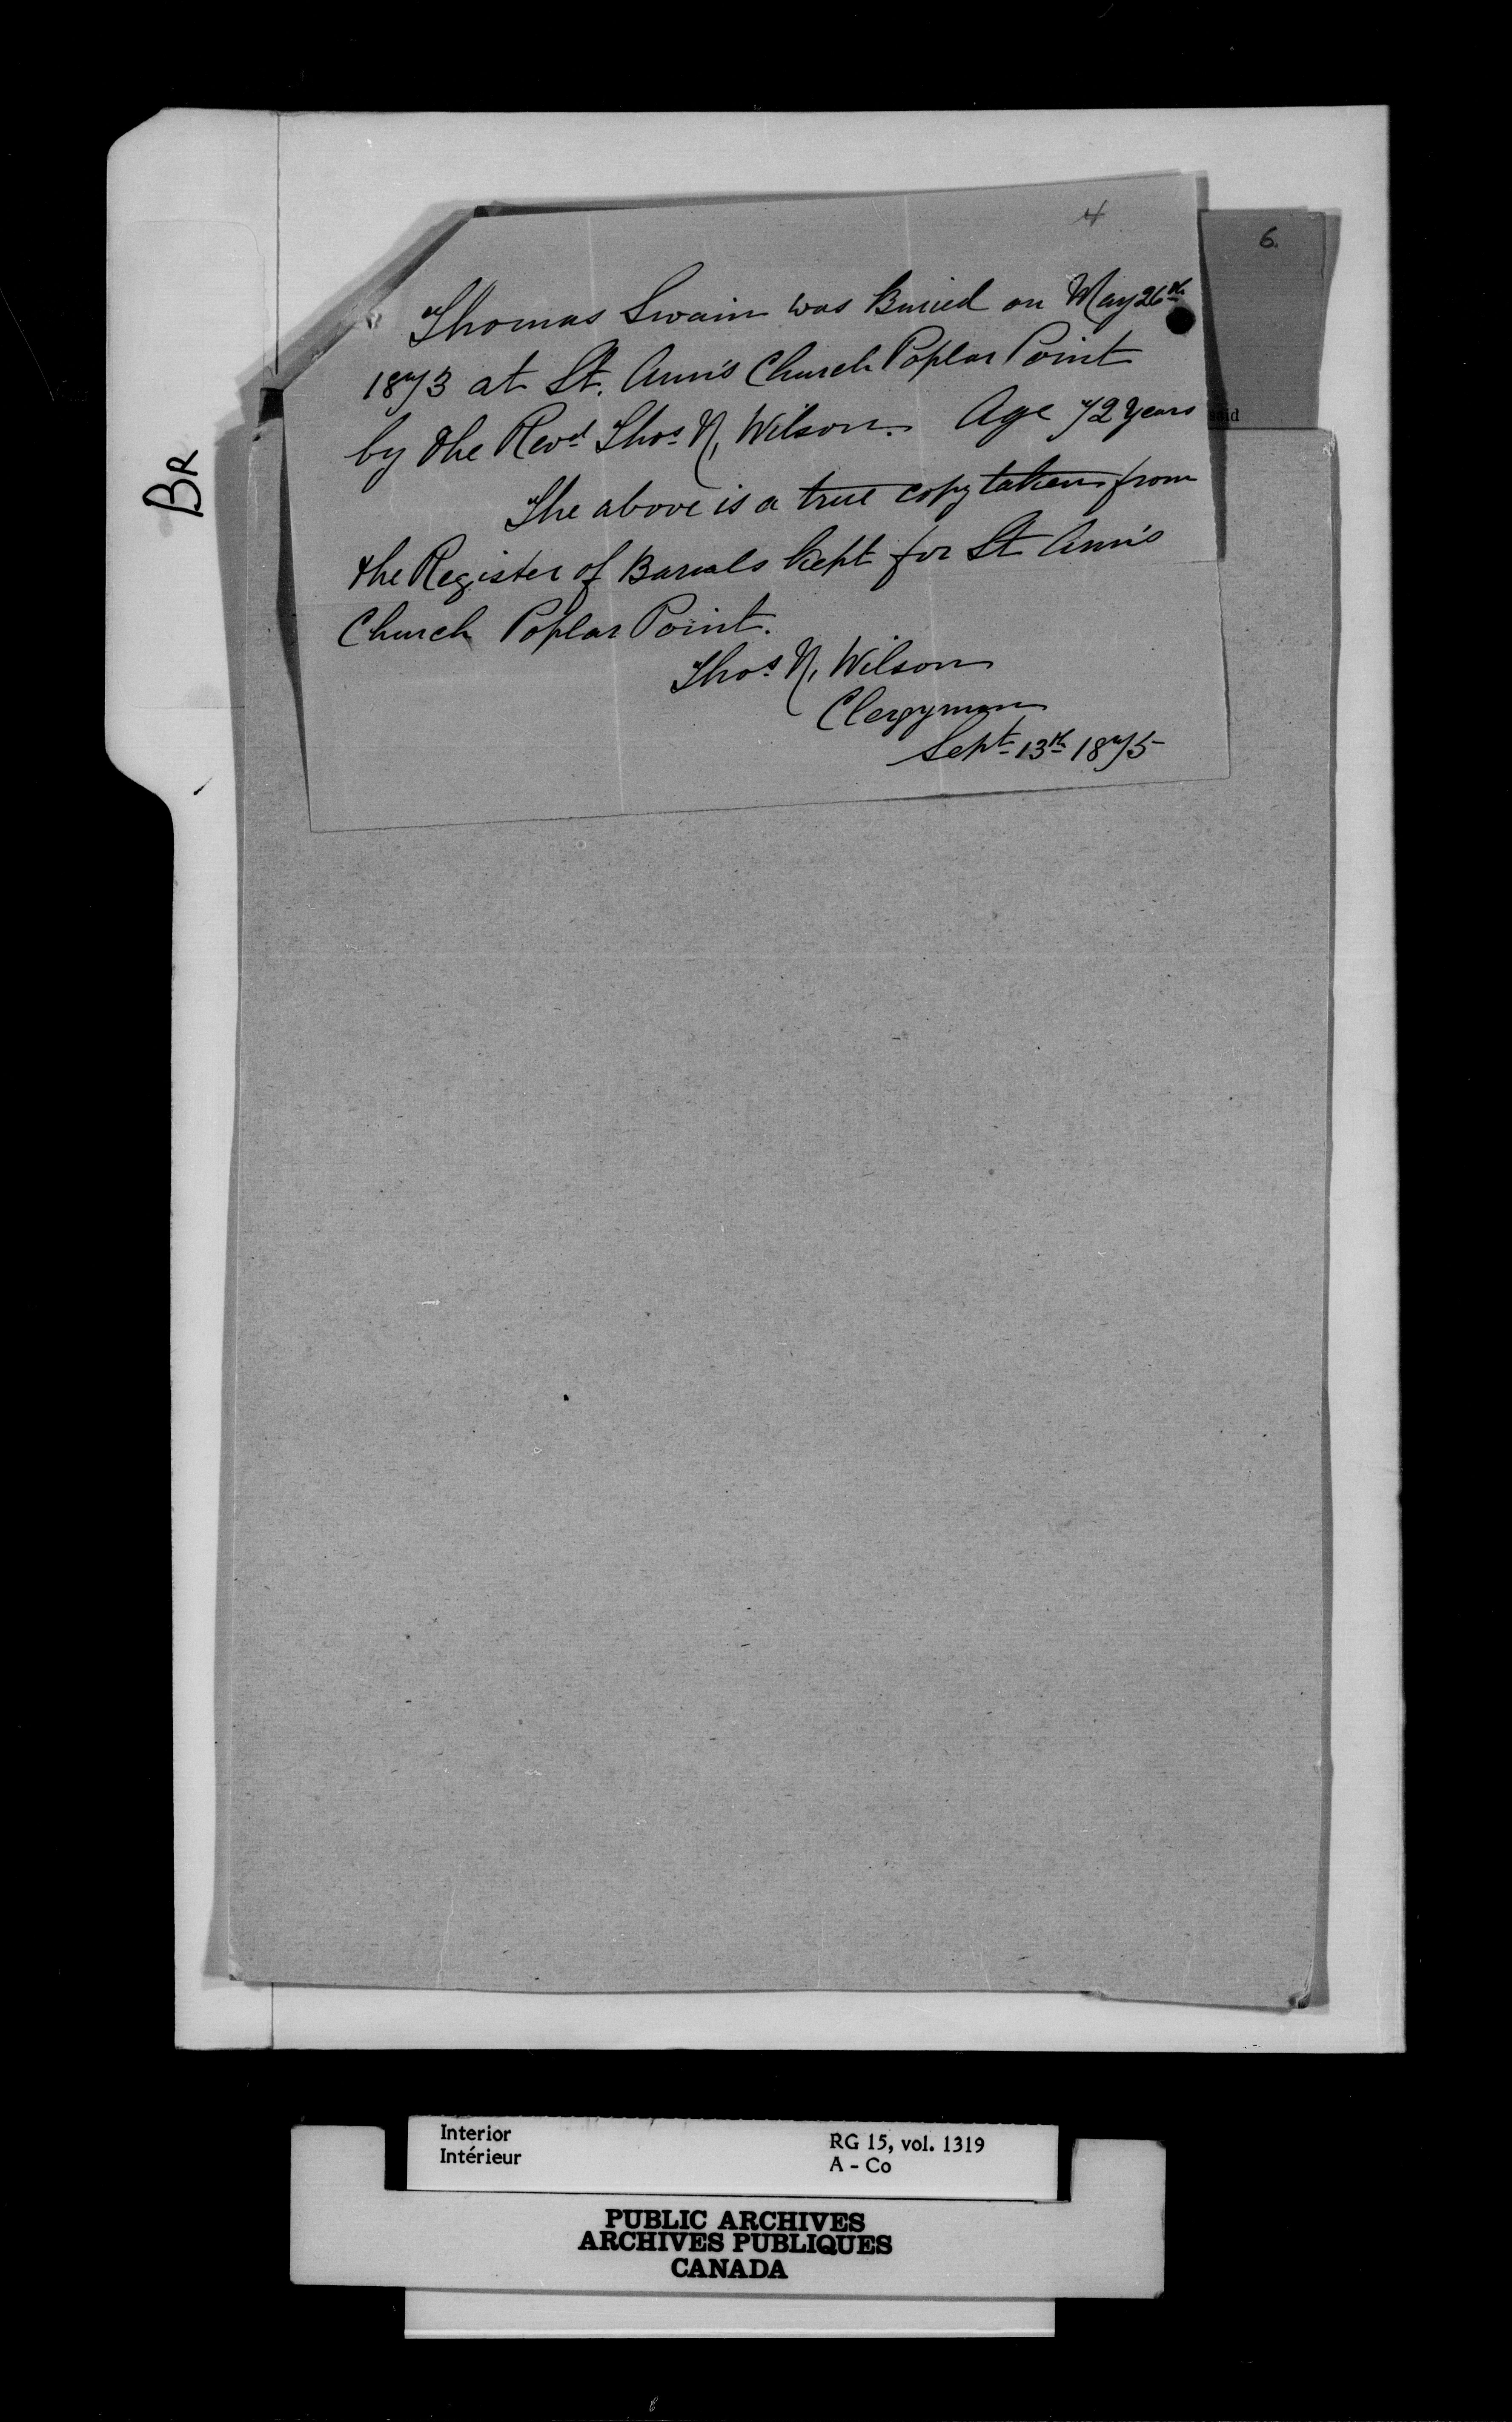 4
6.
Thomas Swain was Buried on May 26th
1873 at St. Ann's Church Poplar Point
by the Revd Thos N, Wilson. Age 72 years
said
The above is a true copy taken from
the Register of Burials kept for St Ann's
Church Poplar Point.
Thos N, Wilson
Clergyman
Sept 13th 1875
BR
Interior
Intérieur
RG 15, vol. 1319
A - Co
PUBLIC ARCHIVES
ARCHIVES PUBLIQUES
CANADA